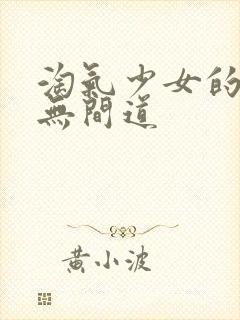 淘氣少女的
無間道
黃小波